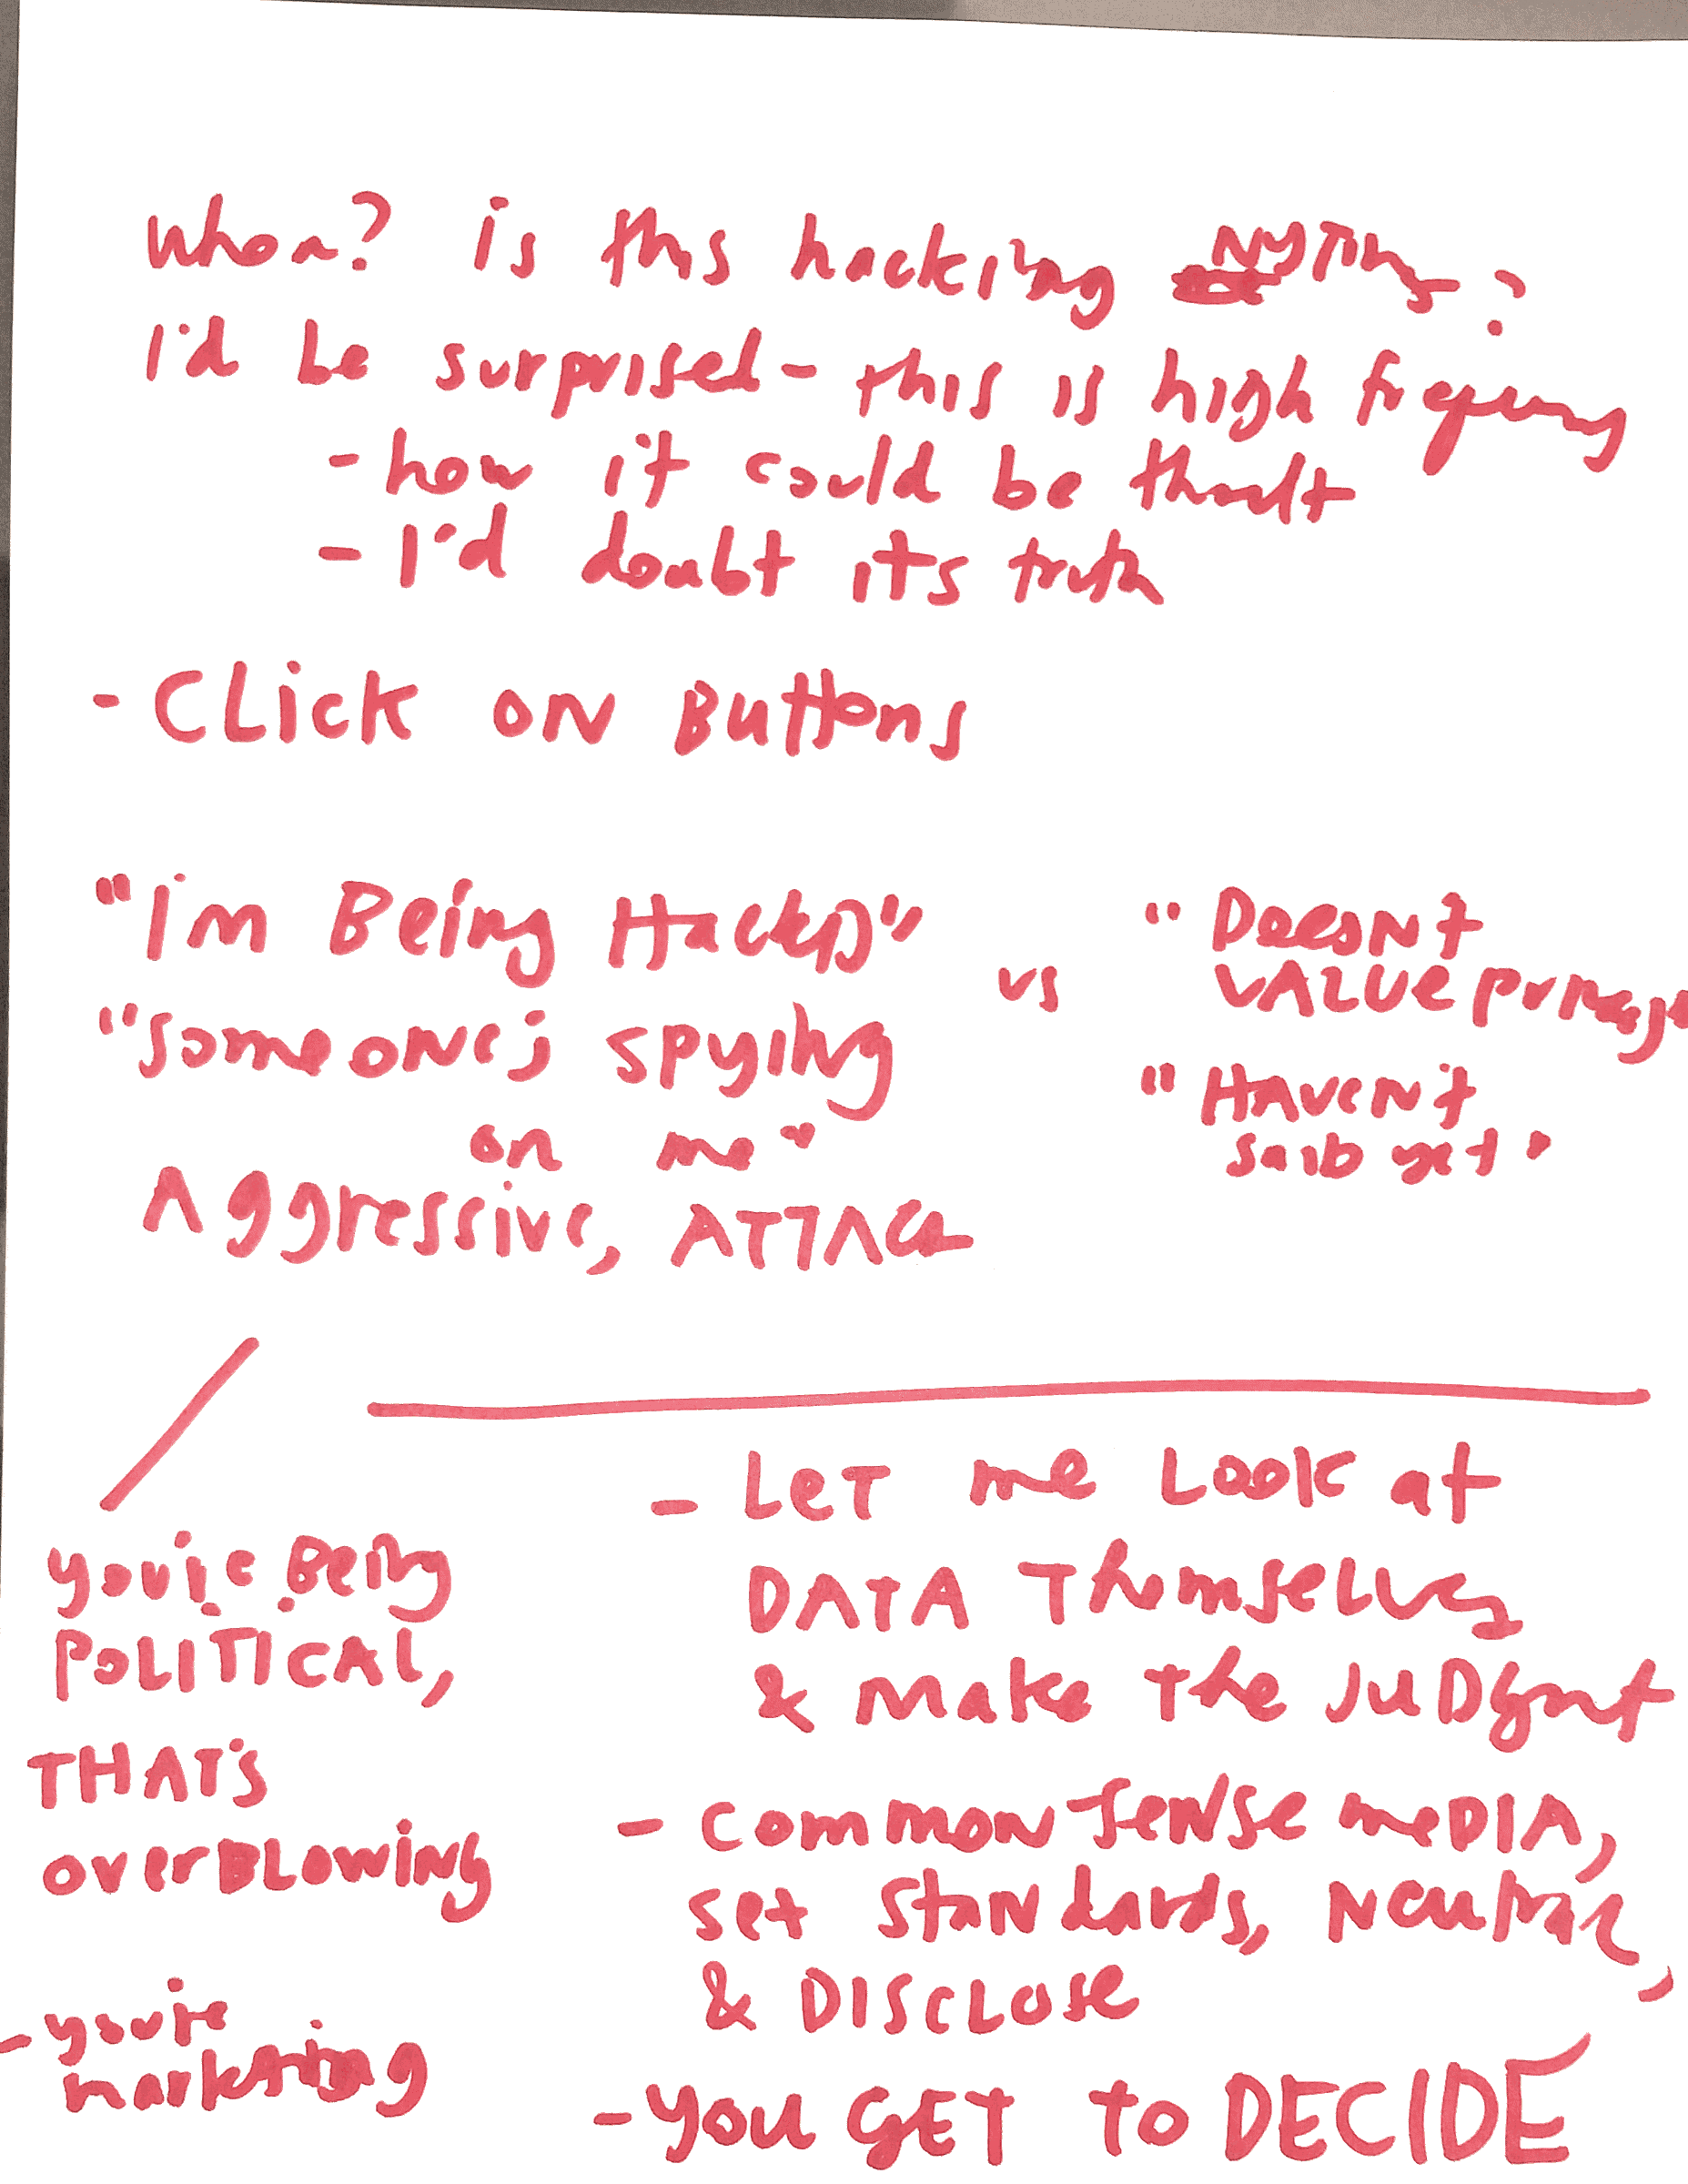 whoa? is this hacking NYTimes?
I'd be surprised - this is high frequency
- how it could be
- I'd doubt its truth
- CLick ON Buttons
"I'm Being HackeD"
vs
"Doesn't
VALUE privacy"
"Someone's spying
on me"
"HAVEN't
SaiD yet"
Aggressive, ATTACk
you're Being
POLITICAL,
THAT'S
overBLOWING
- you're
marketing
- LeT me Look at
DATA Themselves
& Make The JuDgmnt
- common sense meDIA,
set standards, Neutral,
& DISCLOSe
- you GET to DECIDE